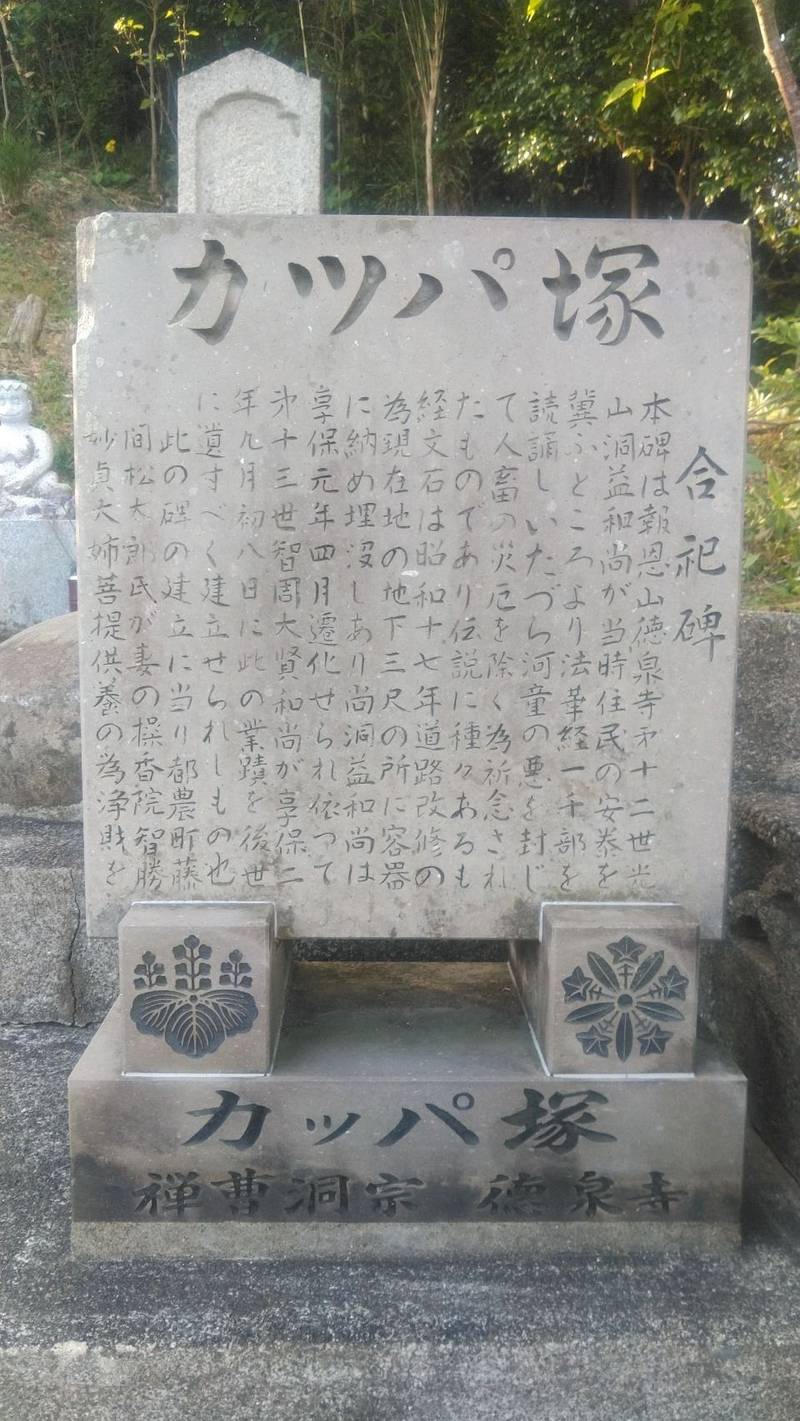 カツパ塚
合祀碑
本碑は報恩山徳泉寺㐧十二世光
山洞益和尚が当時住民の安泰を
冀ふところより法華経一千部を
読誦しいたづら河童の悪を封じ
て人畜の災厄を除く為祈念され
たものであり伝説に種々あるも
経文石は昭和十七年道路改修の
為現在地の地下三尺の所に容器
に納め埋没しあり尚洞益和尚は
享保元年四月遷化せられ依つて
㐧十三世智周大賢和尚が享保二
年九月初八日に此の業蹟を後世
に遺すべく建立せられしもの也
此の碑の建立に当り都農町藤
間松太郎氏が妻の操香院智勝
妙貞大姉菩提供養の為浄財を
カッパ塚
禅曹洞宗 徳泉寺